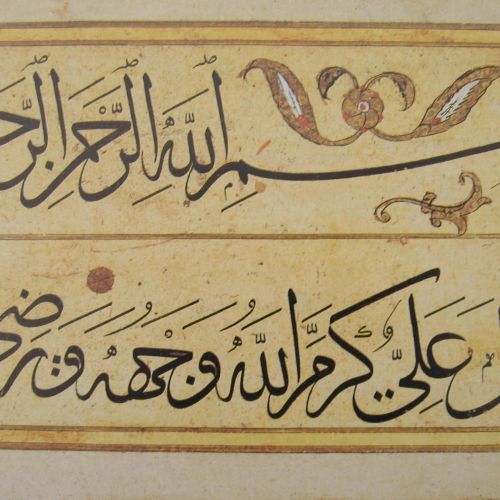 بسمِ اللهِ الرَّحْمنِ الرَّح
عَلِيٌّ كَرَّمَ اللهُ وَجْهَهُ وَرَضِيَ